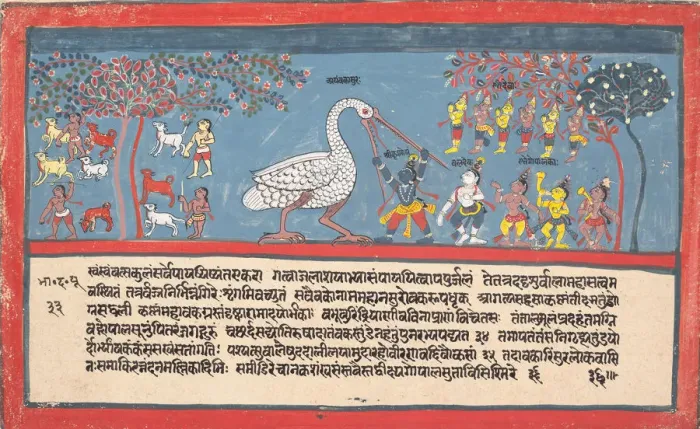 बलदेवः
भा॰ द॰ पू
३३
स्वंस्वंवत्सकुलंसर्वेपाययिष्यंतएकदा गत्वाजलाशयाभ्यासंपाययित्वापपुर्जलं तेतत्रददृशुर्बालामहासत्वम
वस्थितं तत्रवज्रनिर्भिन्नंगिरेःशृंगमिवच्युतं सवैबकोनाममहानसुरोबकरूपधृक् आगत्यसहसाकृष्णंतीक्ष्णतुंडो
ग्रसद्बली कृष्णंमहाबकग्रस्तंदृष्ट्वारामादयोर्भकाः बभूवुरिंद्रियाणीवविनाप्राणंविचेतसः तंतालुमूलंप्रदहंतमग्नि
वद्गोपालसूनुंपितरंजगद्गुरुं चछर्दसद्योतिरुषाक्षतंबकस्तुंडेनहंतुंपुनरभ्यपद्यत ३४ तमापतंतंसनिगृह्यतुंडयो
र्दोर्भ्यांबकंकंससखंसतांगतिः पश्यत्सुबालेषुददारलीलयामुदावहोवीरणवद्दिवौकसां ३५ तदाबकारिंसुरलोकवासि
नःसमाकिरन्नंदनमल्लिकादिभिः समीडिरेचानकशंखसंस्तवैस्तद्वीक्ष्यगोपालसुताविसिस्मिरे ३६ ३६॥